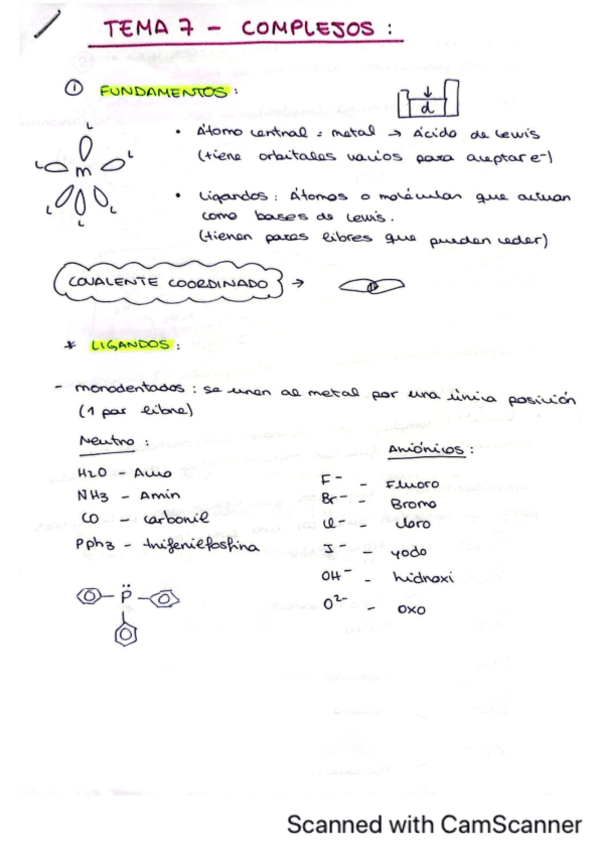 TEMA 7 - COMPLEJOS :
① FUNDAMENTOS :
d
• Átomo central = metal → Ácido de Lewis
(tiene orbitales vacíos para aceptar e-)
L
L m L
L L
L
• Ligandos : Átomos o moléculas que actúan
como bases de Lewis.
(tienen pares libres que pueden ceder)
COVALENTE COORDINADO →
* LIGANDOS :
- monodentados : se unen al metal por una única posición
(1 par libre)
Neutro :
H2O - Acuo
NH3 - Amin
CO - carbonil
Pph3 - trifenilfosfina
P
Aniónicos :
F- - Fluoro
Br- - Bromo
Cl- - cloro
I- - yodo
OH- - hidroxi
O2- - oxo
Scanned with CamScanner